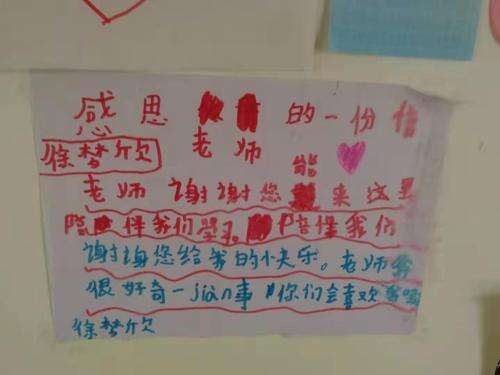 感恩 的一份
徐梦欣 老师
老师 谢谢您能来这里
陪伴我们学习 陪伴我们
谢谢您给我的小快乐。老师我
很好奇一jiàn事 你们会喜欢我吗
徐梦欣